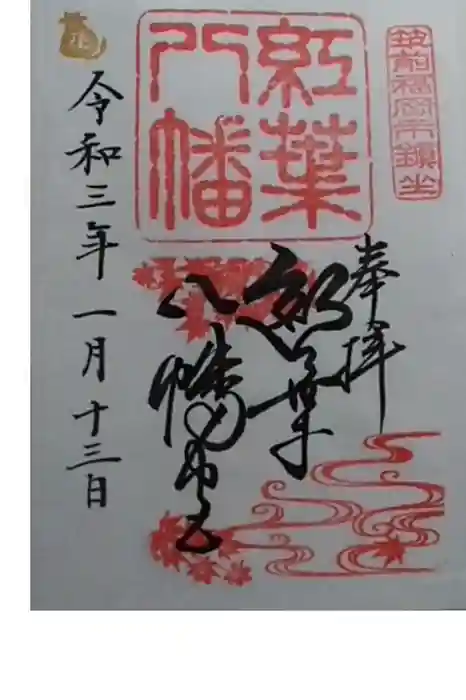 筑前福岡市鎮坐
奉拝
紅葉
八幡
紅葉
八幡宮
令和三年一月十三日